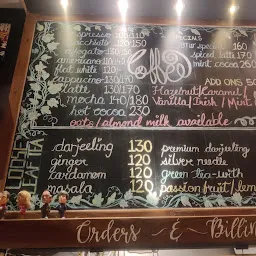 espresso 110/140
americano 140
flat white 160
cappucino 130/150
latte 130/170
mocha 140/180
hot cocoa 230
oats/almond milk available
Coffee
SPECIALS
spiced 160
mint cocoa 250
ADD ONS 50
Hazelnut/Caramel/
Vanilla/Irish/Mint
LOOSE
LEAF TEA
darjeeling 130
ginger 120
cardamom 120
masala 120
premium darjeeling
silver needle
green tea-with
passion fruit/lem
Orders - & - Billin